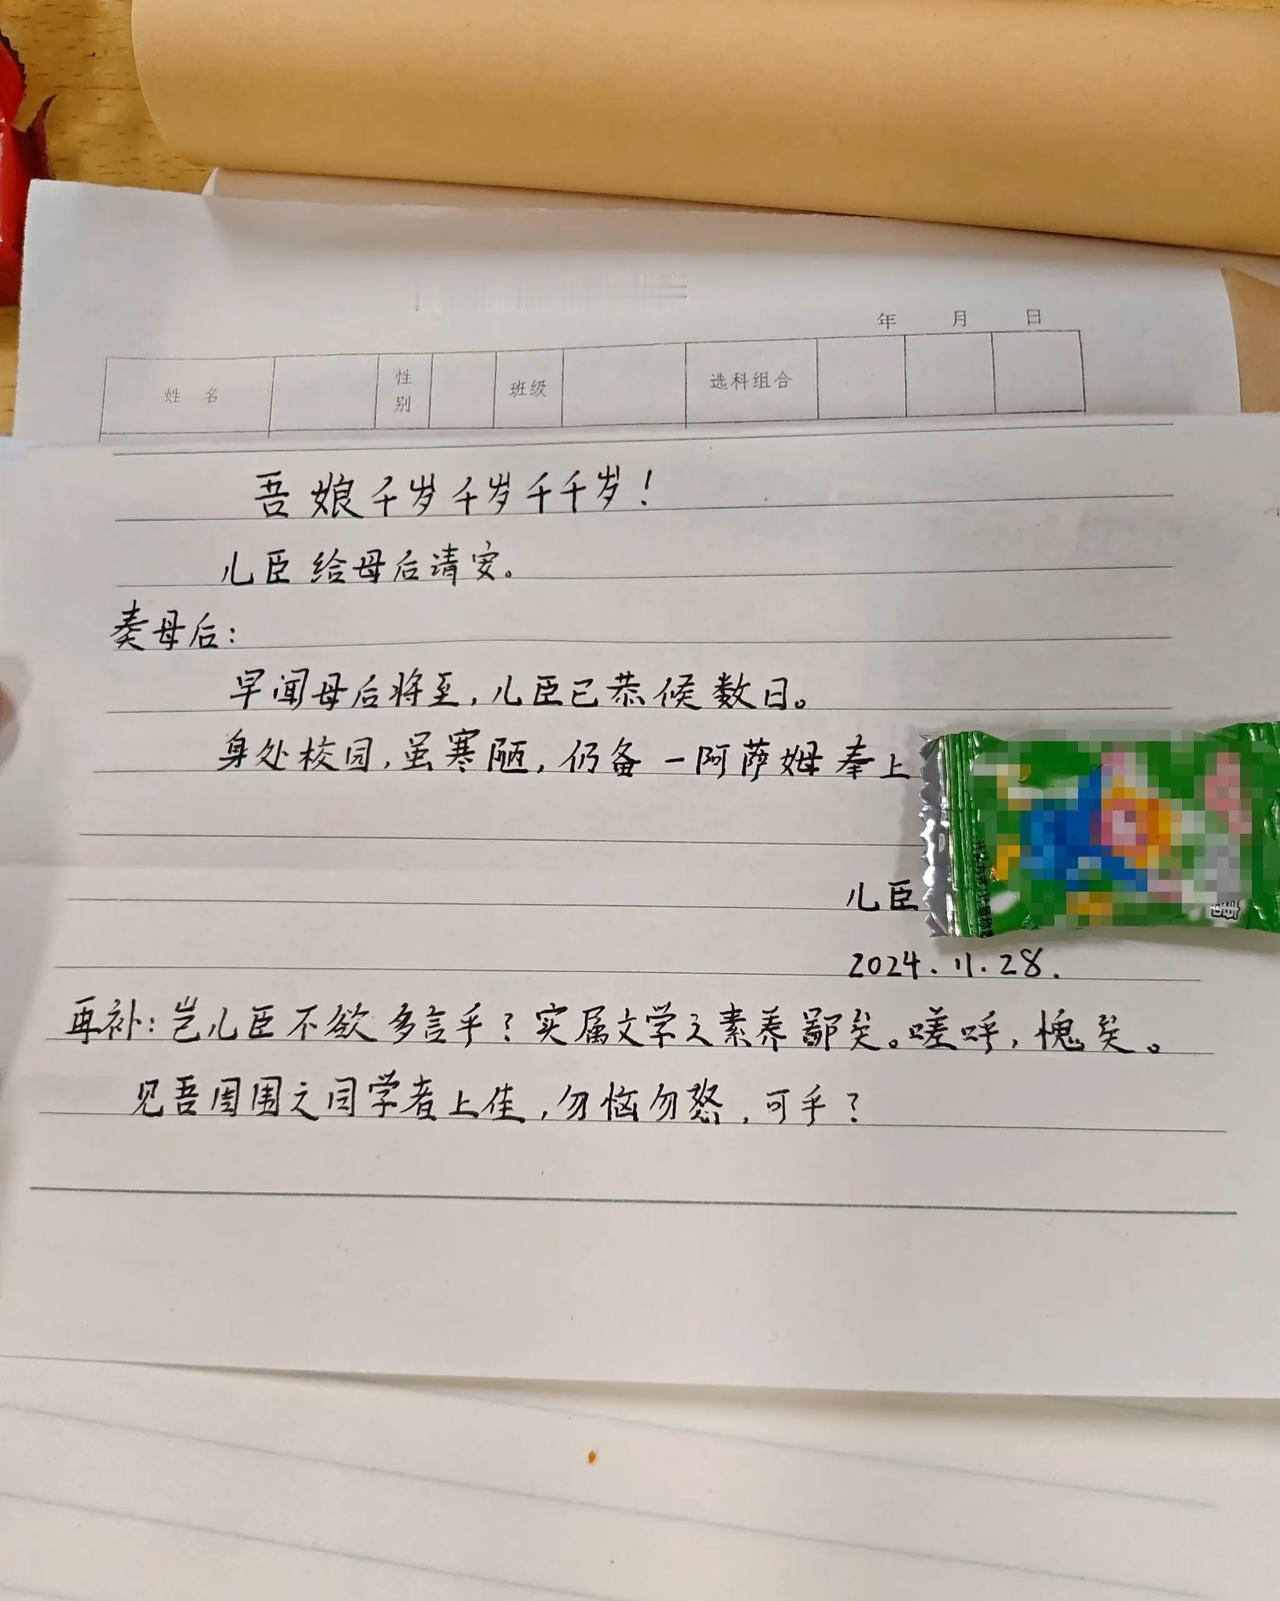 年 月 日
姓 名 性别 班级 选科组合
吾娘千岁千岁千千岁！
儿臣给母后请安。
奏母后：
早闻母后将至，儿臣已恭候数日。
身处校园，虽寒陋，仍备一阿萨姆奉上
儿臣
2024.11.28.
再补：岂儿臣不欲多言乎？实属文学之素养鄙矣。嗟呼，愧矣。
见吾周围之同学者上佳，勿恼勿怒，可乎？